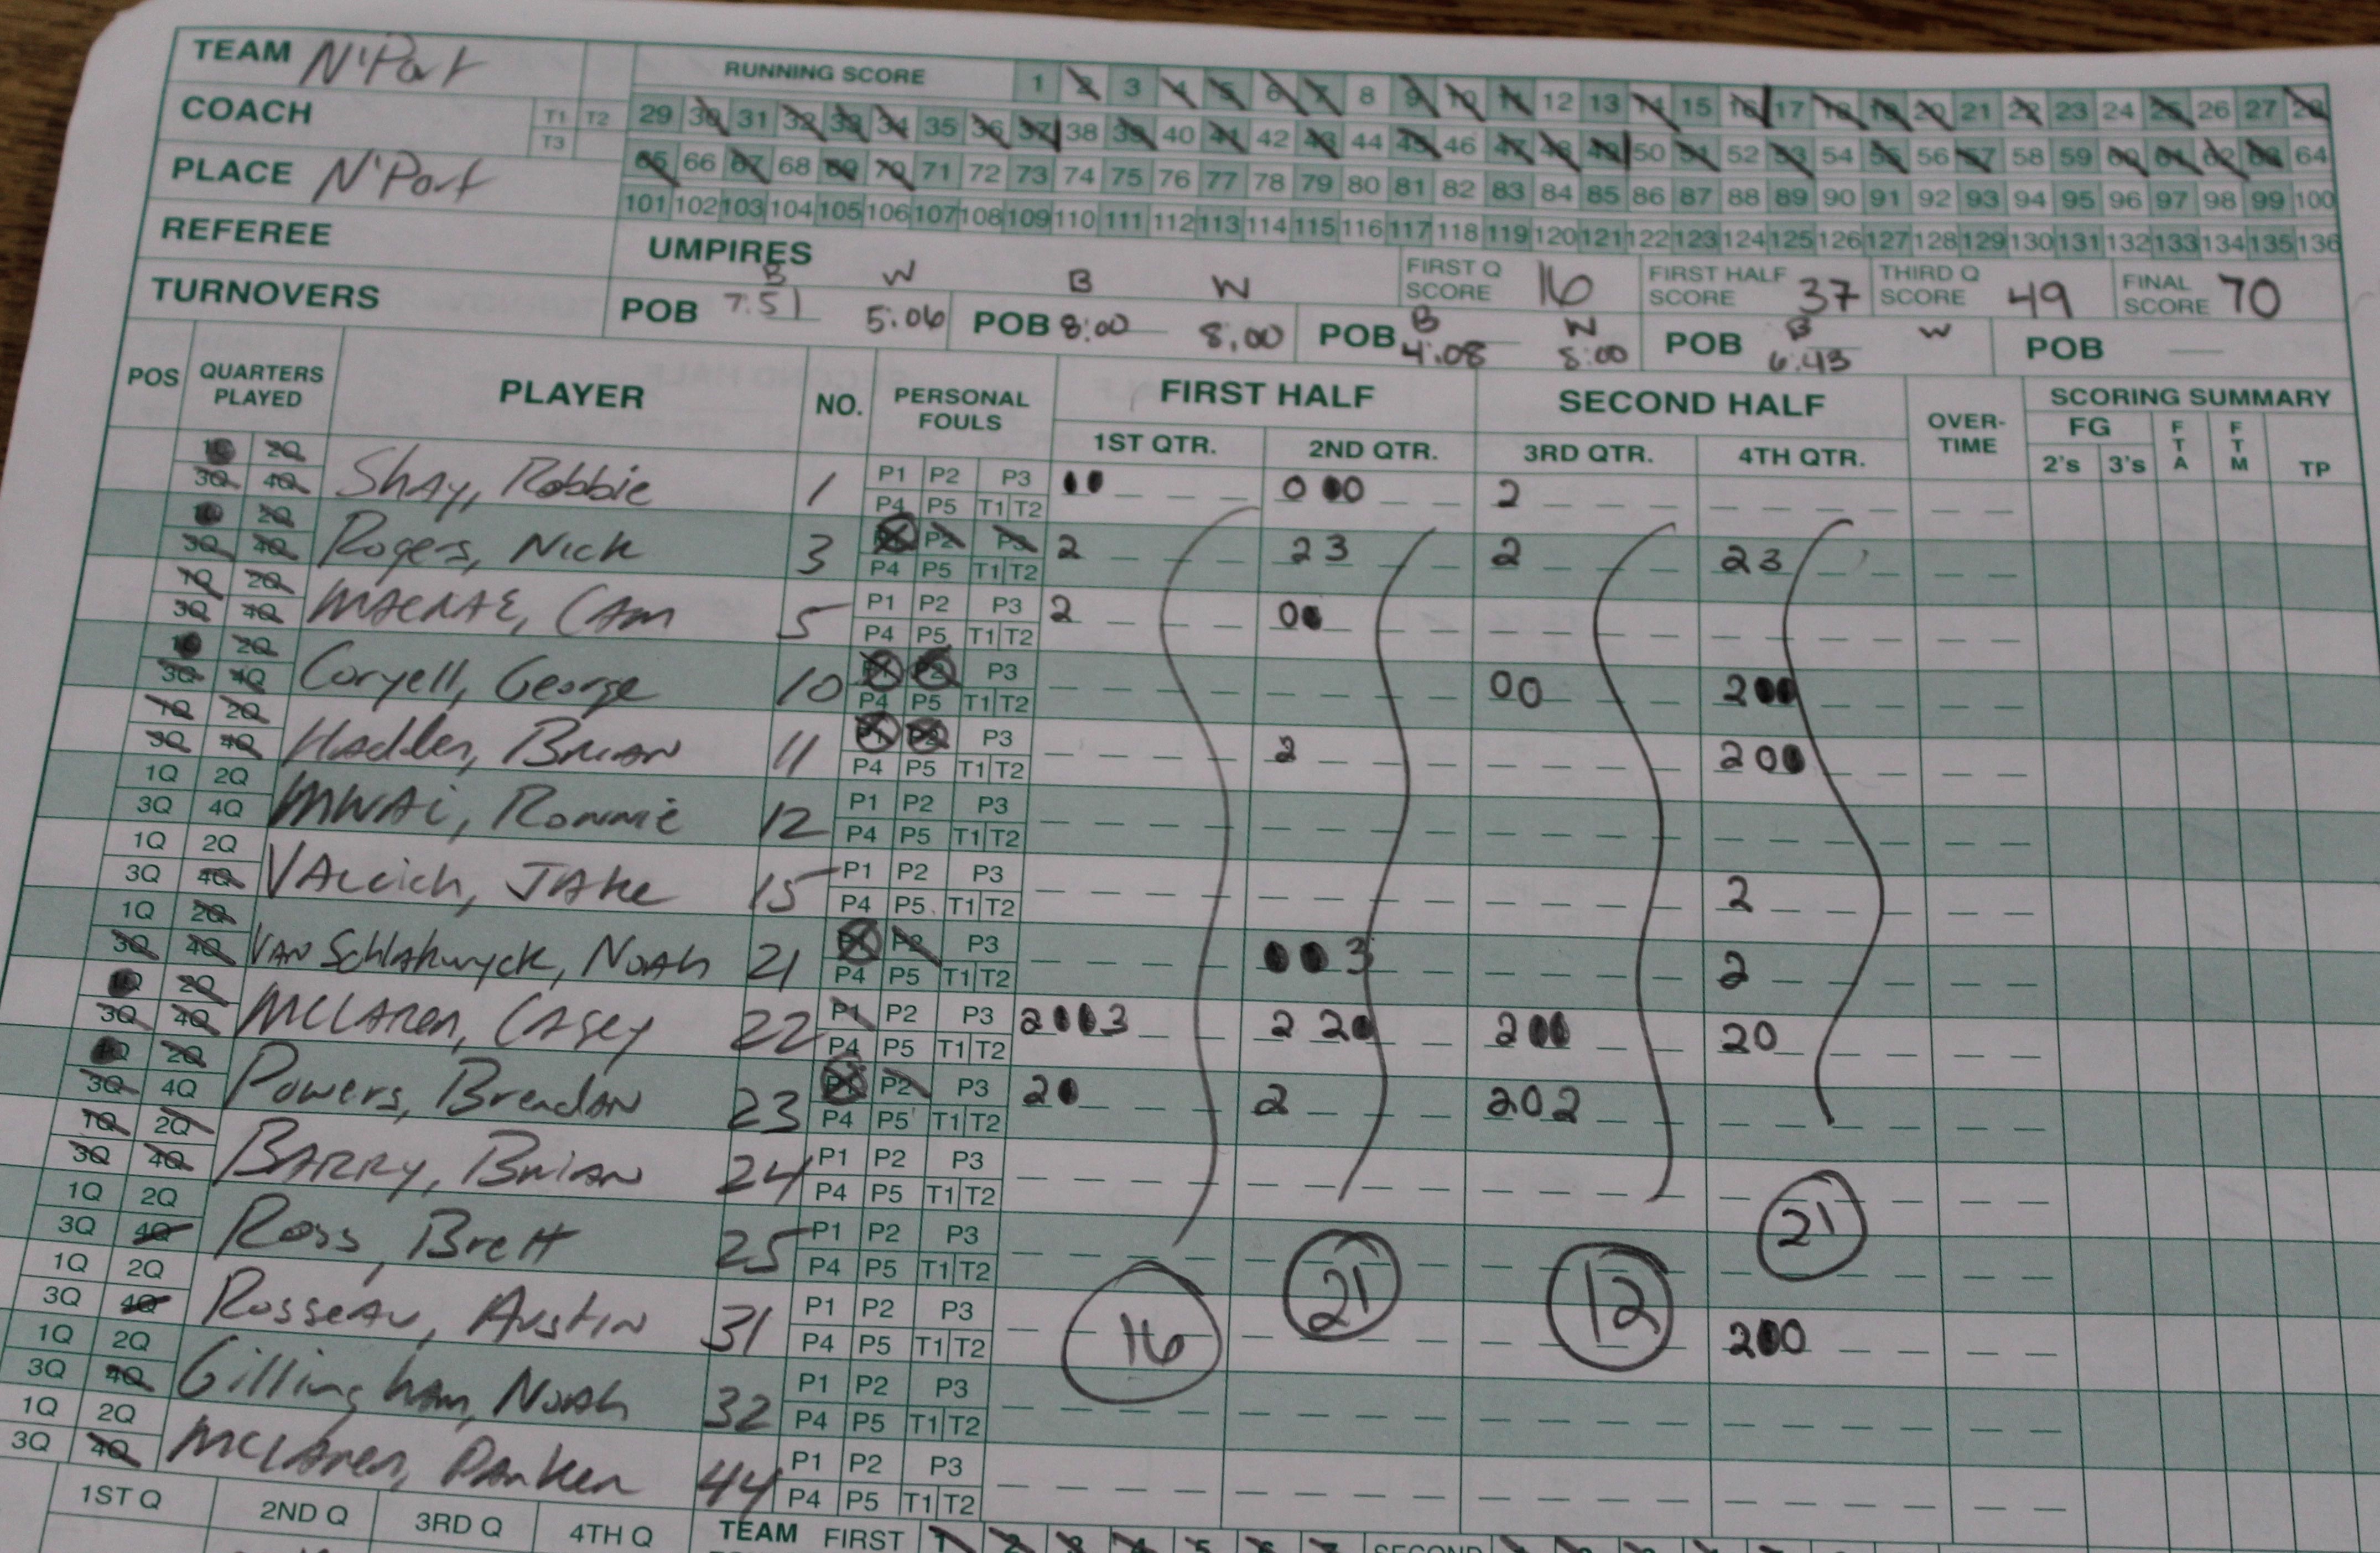 TEAM N'Port
RUNNING SCORE 1 2 3 4 5 6 7 8 9 10 11 12 13 14 15 16 17 18 19 20 21 22 23 24 25 26 27 28
COACH T1 T2 T3
29 30 31 32 33 34 35 36 37 38 39 40 41 42 43 44 45 46 47 48 49 50 51 52 53 54 55 56 57 58 59 60 61 62 63 64
65 66 67 68 69 70 71 72 73 74 75 76 77 78 79 80 81 82 83 84 85 86 87 88 89 90 91 92 93 94 95 96 97 98 99 100
PLACE N'Port
101 102 103 104 105 106 107 108 109 110 111 112 113 114 115 116 117 118 119 120 121 122 123 124 125 126 127 128 129 130 131 132 133 134 135 136
REFEREE
UMPIRES
FIRST Q SCORE 16 FIRST HALF SCORE 37 THIRD Q SCORE 49 FINAL SCORE 70
TURNOVERS
POB B 7:51 W 5:06 POB B 8:00 W 8:00 POB B 4:08 W 8:00 POB B 6:43 W POB
POS QUARTERS PLAYED PLAYER NO. PERSONAL FOULS FIRST HALF SECOND HALF OVER-TIME SCORING SUMMARY
1ST QTR. 2ND QTR. 3RD QTR. 4TH QTR. FG 2's 3's FTA FTM TP
1Q 2Q P1 P2 P3
3Q 4Q Shay, Robbie 1 P4 P5 T1 T2 00 000 2
1Q 2Q P1 P2 P3
3Q 4Q Rogers, Nick 3 P4 P5 T1 T2 2 23 2 23
1Q 2Q P1 P2 P3
3Q 4Q MACRAE, CAM 5 P4 P5 T1 T2 2 00
1Q 2Q P1 P2 P3
3Q 4Q Coryell, George 10 P4 P5 T1 T2 00 200
1Q 2Q P1 P2 P3
3Q 4Q Hadden, BRIAN 11 P4 P5 T1 T2 2 200
1Q 2Q P1 P2 P3
3Q 4Q MWAi, Ronnie 12 P4 P5 T1 T2
1Q 2Q P1 P2 P3
3Q 4Q JAke 15 P4 P5 T1 T2 2
1Q 2Q P1 P2 P3
3Q 4Q VAN NOAH 21 P4 P5 T1 T2 003 2
1Q 2Q P1 P2 P3
3Q 4Q MCLAREN, CASEY 22 P4 P5 T1 T2 2003 220 200 20
1Q 2Q P1 P2 P3
3Q 4Q Powers, BrendAN 23 P4 P5 T1 T2 20 2 202
1Q 2Q P1 P2 P3
3Q 4Q BARRY, BRIAN 24 P4 P5 T1 T2
1Q 2Q P1 P2 P3
3Q 4Q Ross, Brett 25 P4 P5 T1 T2
1Q 2Q P1 P2 P3
3Q 4Q RosseAu, AustIN 31 P4 P5 T1 T2 200
1Q 2Q P1 P2 P3
3Q 4Q GillinghAm, NoAh 32 P4 P5 T1 T2
1Q 2Q P1 P2 P3
3Q 4Q MCLAren, PArker 44 P4 P5 T1 T2
16 21 12 21
1ST Q 2ND Q 3RD Q 4TH Q TEAM FIRST 1 2 3 4 5 6 7 SECOND